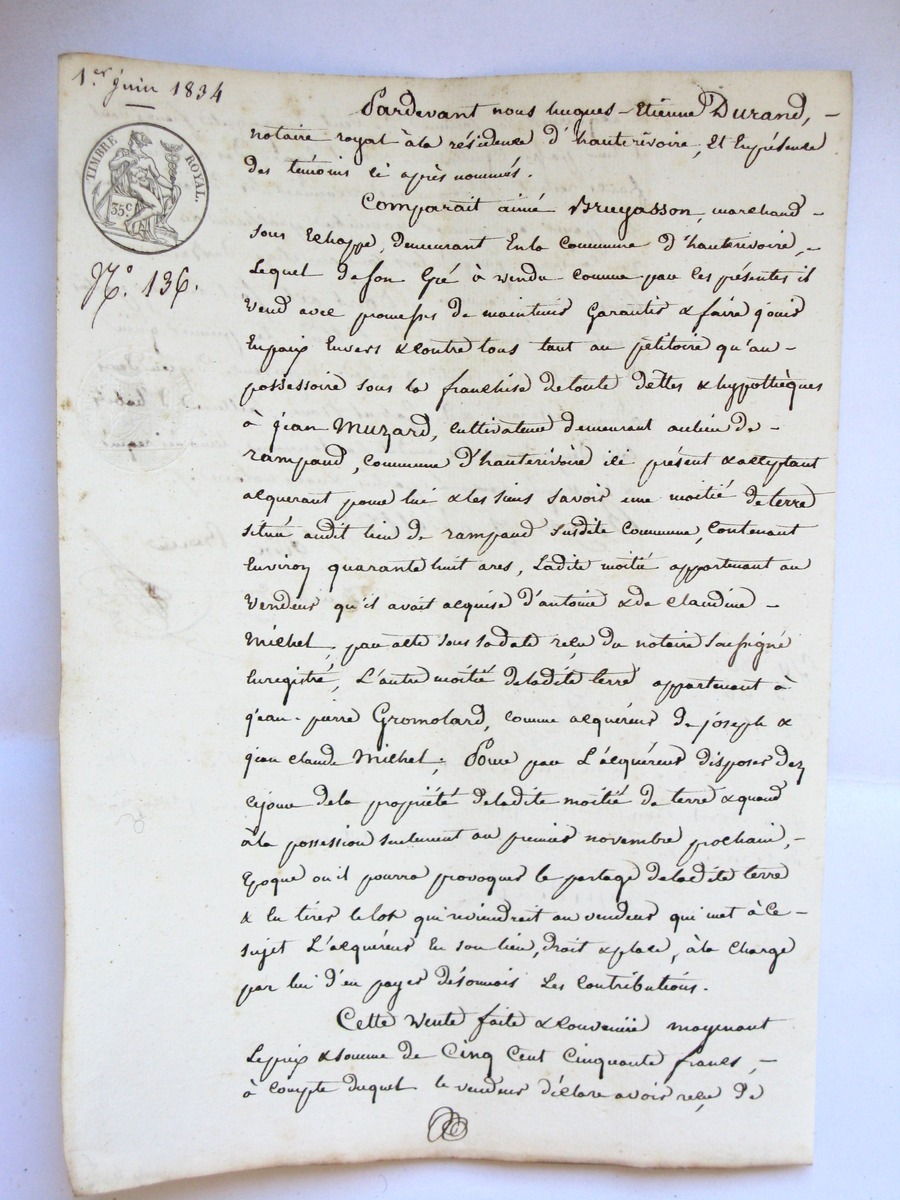 1er juin 1834
TIMBRE ROYAL.
35c
No. 136.
Pardevant nous hugues-Etienne Durand, -
notaire royal à la résidence d'hauterivoire, Et Enprésence
Des témoins ci après nommés.
Comparait aimé Bruyasson, marchand -
sous Echoppe, demeurant Enla Commune d'hauterivoire, -
Lequel de son Gré à vendu comme par ces présentes il
vend avec promesses de maintenir Garantir & faire jouir
Enpaix Envers & contre tous tant au pétitoire qu'au -
possessoire sous la franchise detoute dettes & hypothèques
à jean Muzard, cultivateur demeurant aulieu de -
rampaud, commune d'hauterivoire ici présent & acceptant
acquerant pour lui & les siens savoir une moitié de terre
située audit lieu de rampaud susdite Commune, Contenant
Environ quarante huit ares, Ladite moitié appartenant au
vendeur qu'il avait acquise d'antoine & de claudine -
Michel, par acte sous sa date reçu du notaire soussigné
Enregistré, L'autre moitié deladite terre appartenant à
jean-pierre Gromolard, comme acquéreur de joseph &
jean claude Michel; Pour par L'acquéreur disposer dez
cejour dela propriété deladite moitié de terre & quand
àla possession seulement au premier novembre prochain, -
Epoque ou il pourra provoquer le partage deladite terre
& En tirer le lot qui reviendrait au vendeur qui met à ce -
sujet L'acquéreur En son lieu, droit & place, àla charge
par lui d'en payer désormais Les Contributions.
Cette vente faite & convenüe moyenant
Leprix & somme de Cinq Cent Cinquante francs, -
à compte duquel le vendeur déclare avoir reçu de